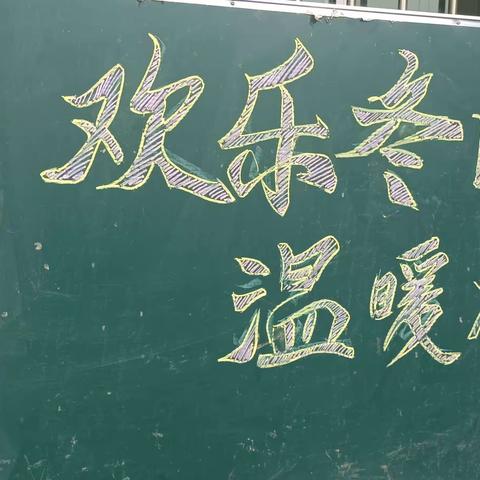 欢乐冬
温暖